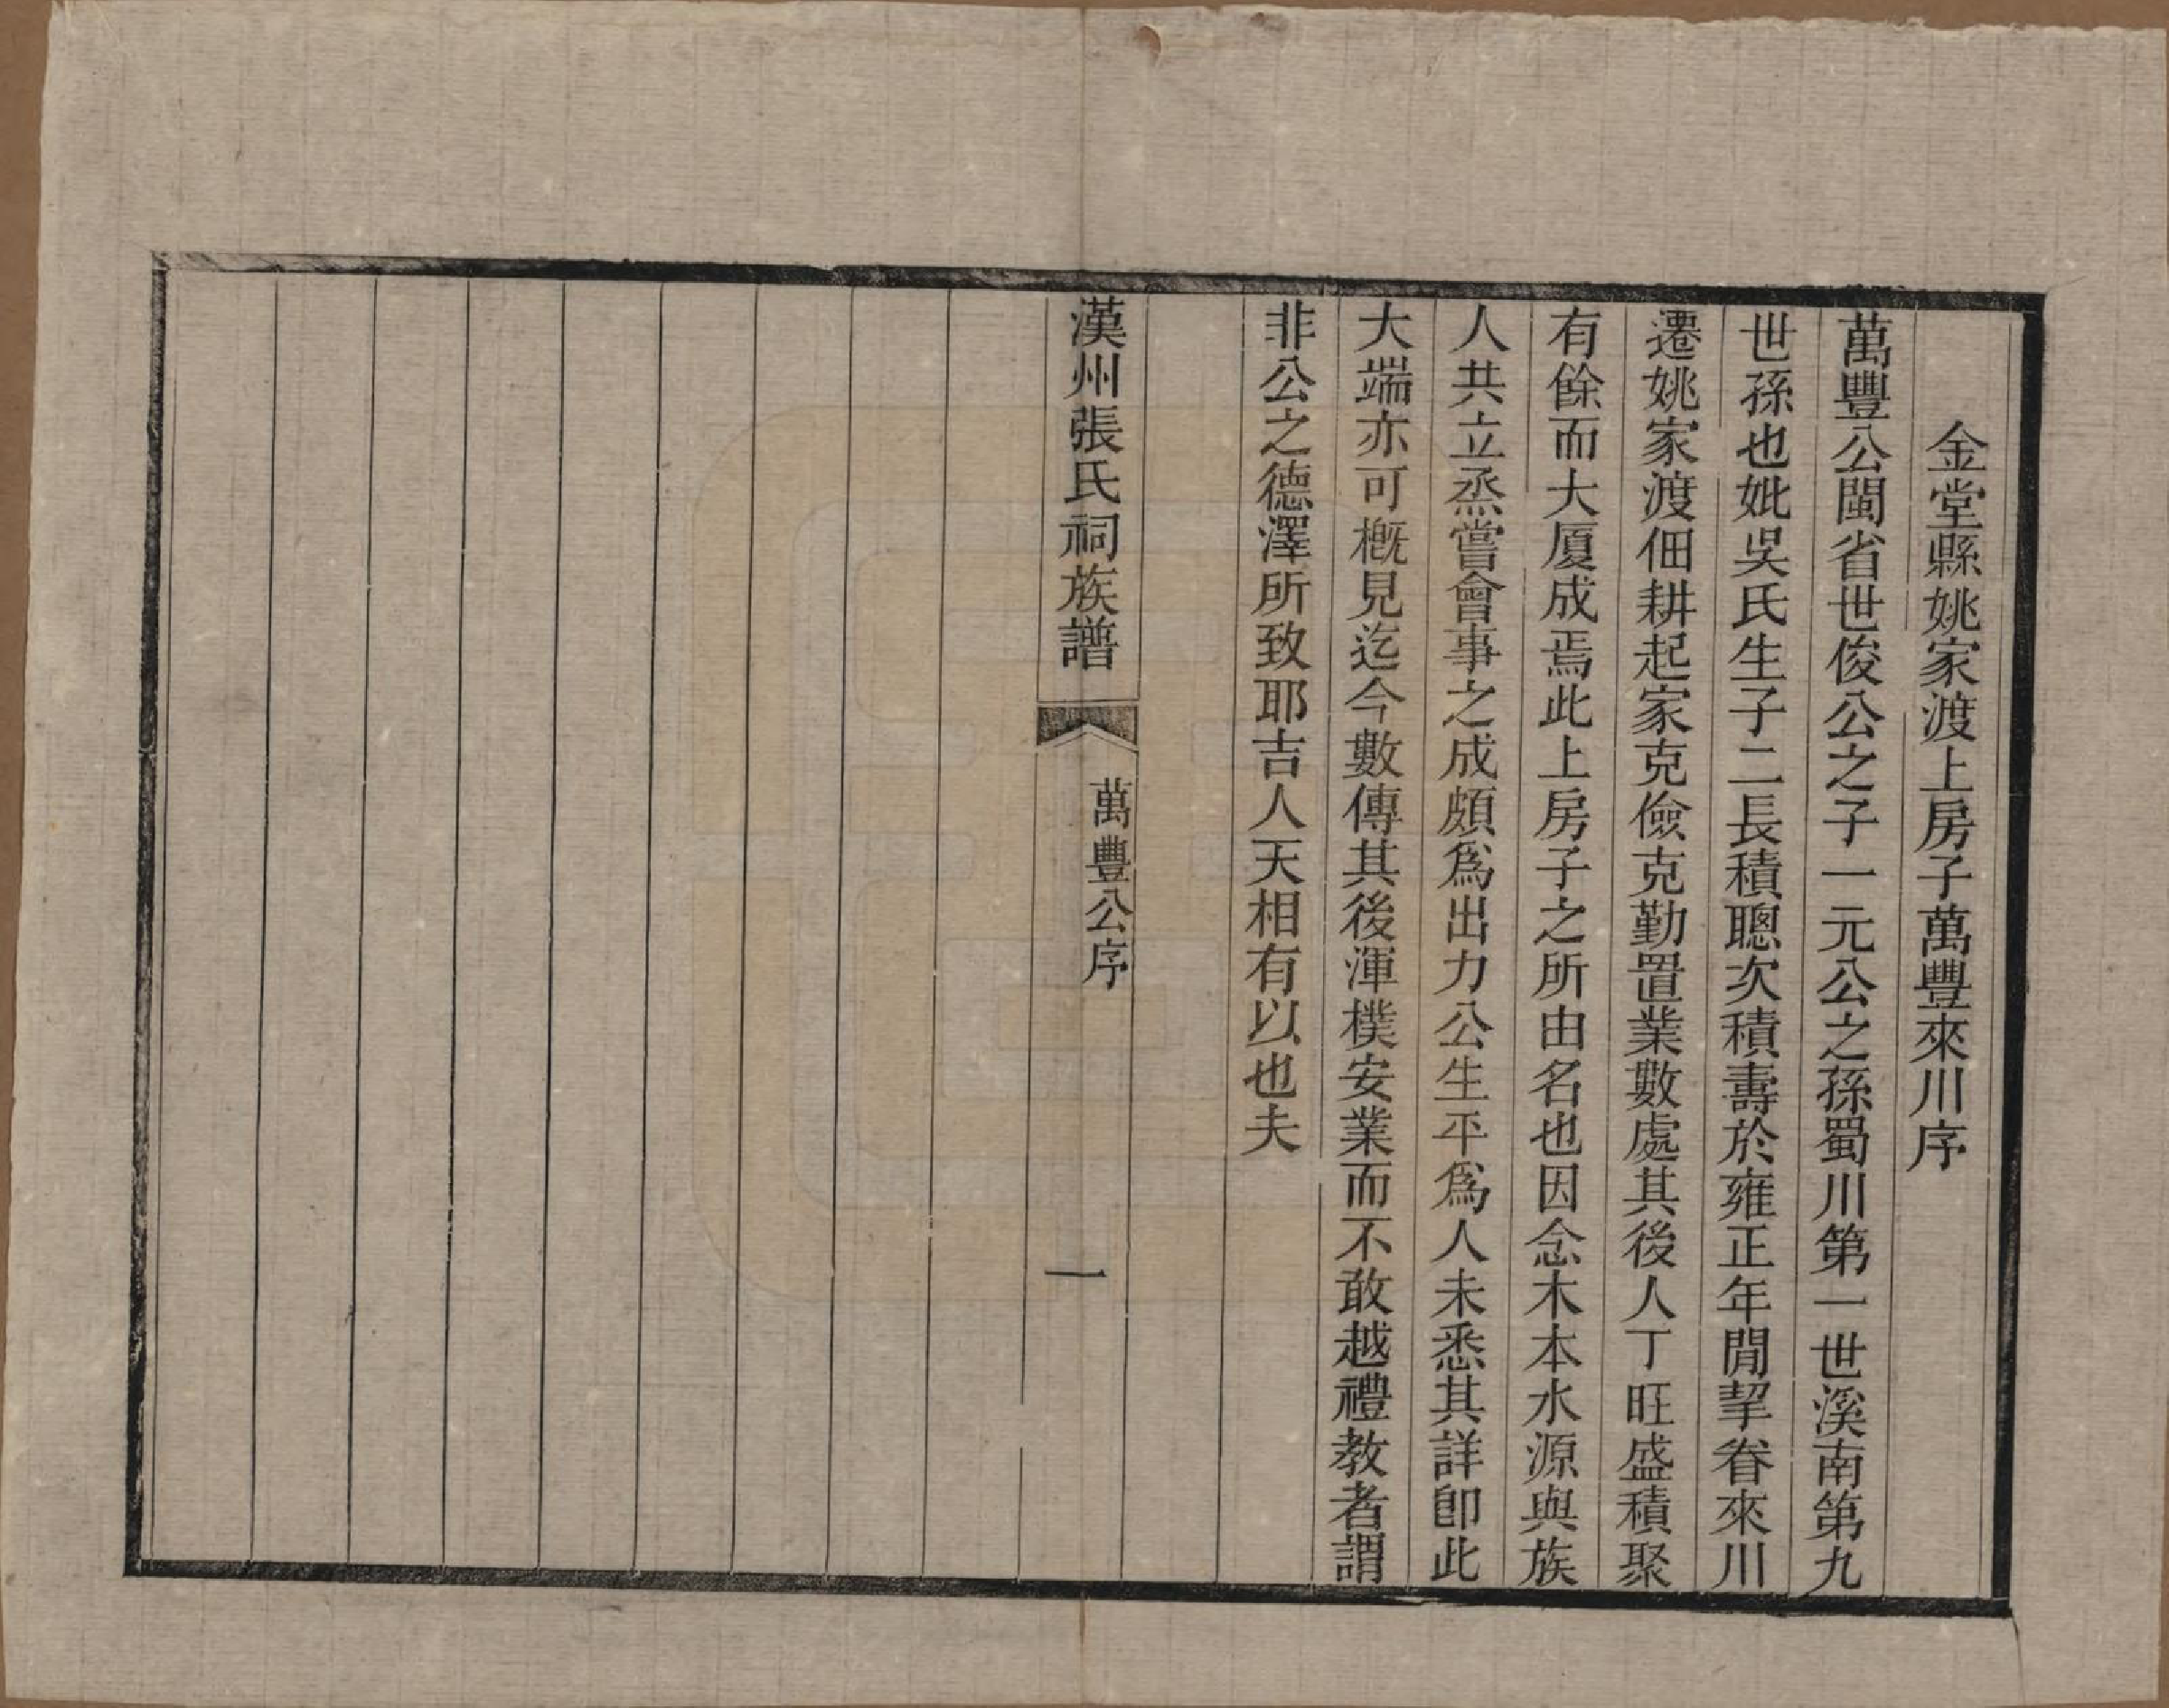 金堂縣姚家渡上房子萬豐來川序
萬豐公閩省世俊公之子一元公之孫蜀川第一世溪南第九
世孫也妣吳氏生子二長積聰次積壽於雍正年閒挈眷來川
遷姚家渡佃耕起家克儉克勤置業數處其後人丁旺盛積聚
有餘而大厦成焉此上房子之所由名也因念木本水源與族
人共立烝嘗會事之成頗爲出力公生平爲人未悉其詳卽此
大端亦可概見迄今數傳其後渾樸安業而不敢越禮教者謂
非公之德澤所致耶吉人天相有以也夫
漢州張氏祠族譜
萬豐公序
一